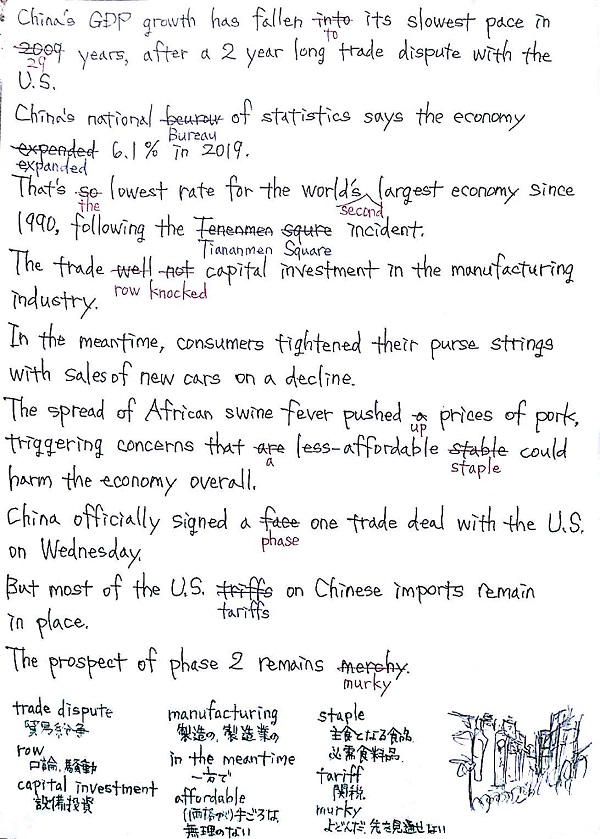 China's GDP growth has fallen into its slowest pace in
to
2009 years, after a 2 year long trade dispute with the
29
U.S.
China's national beurow of statistics says the economy
Bureau
expended 6.1% in 2019.
expanded
That's so lowest rate for the world's largest economy since
the second
1990, following the Tenenmen squre incident.
Tiananmen Square
The trade well not capital investment in the manufacturing
row knocked
industry.
In the meantime, consumers tightened their purse strings
with sales of new cars on a decline.
The spread of African swine fever pushed a prices of pork,
up
triggering concerns that are less-affordable stable could
a staple
harm the economy overall.
China officially signed a face one trade deal with the U.S.
phase
on Wednesday.
But most of the U.S. triffs on Chinese imports remain
tariffs
in place.
The prospect of phase 2 remains merchy.
murky
trade dispute
貿易紛争
row
口論、騒動
capital investment
設備投資
manufacturing
製造の、製造業の
in the meantime
一方で
affordable
(価格が)手ごろな、
無理のない
staple
主食となる食品、
必需食料品
tariff
関税
murky
よどんだ、先を見通せない